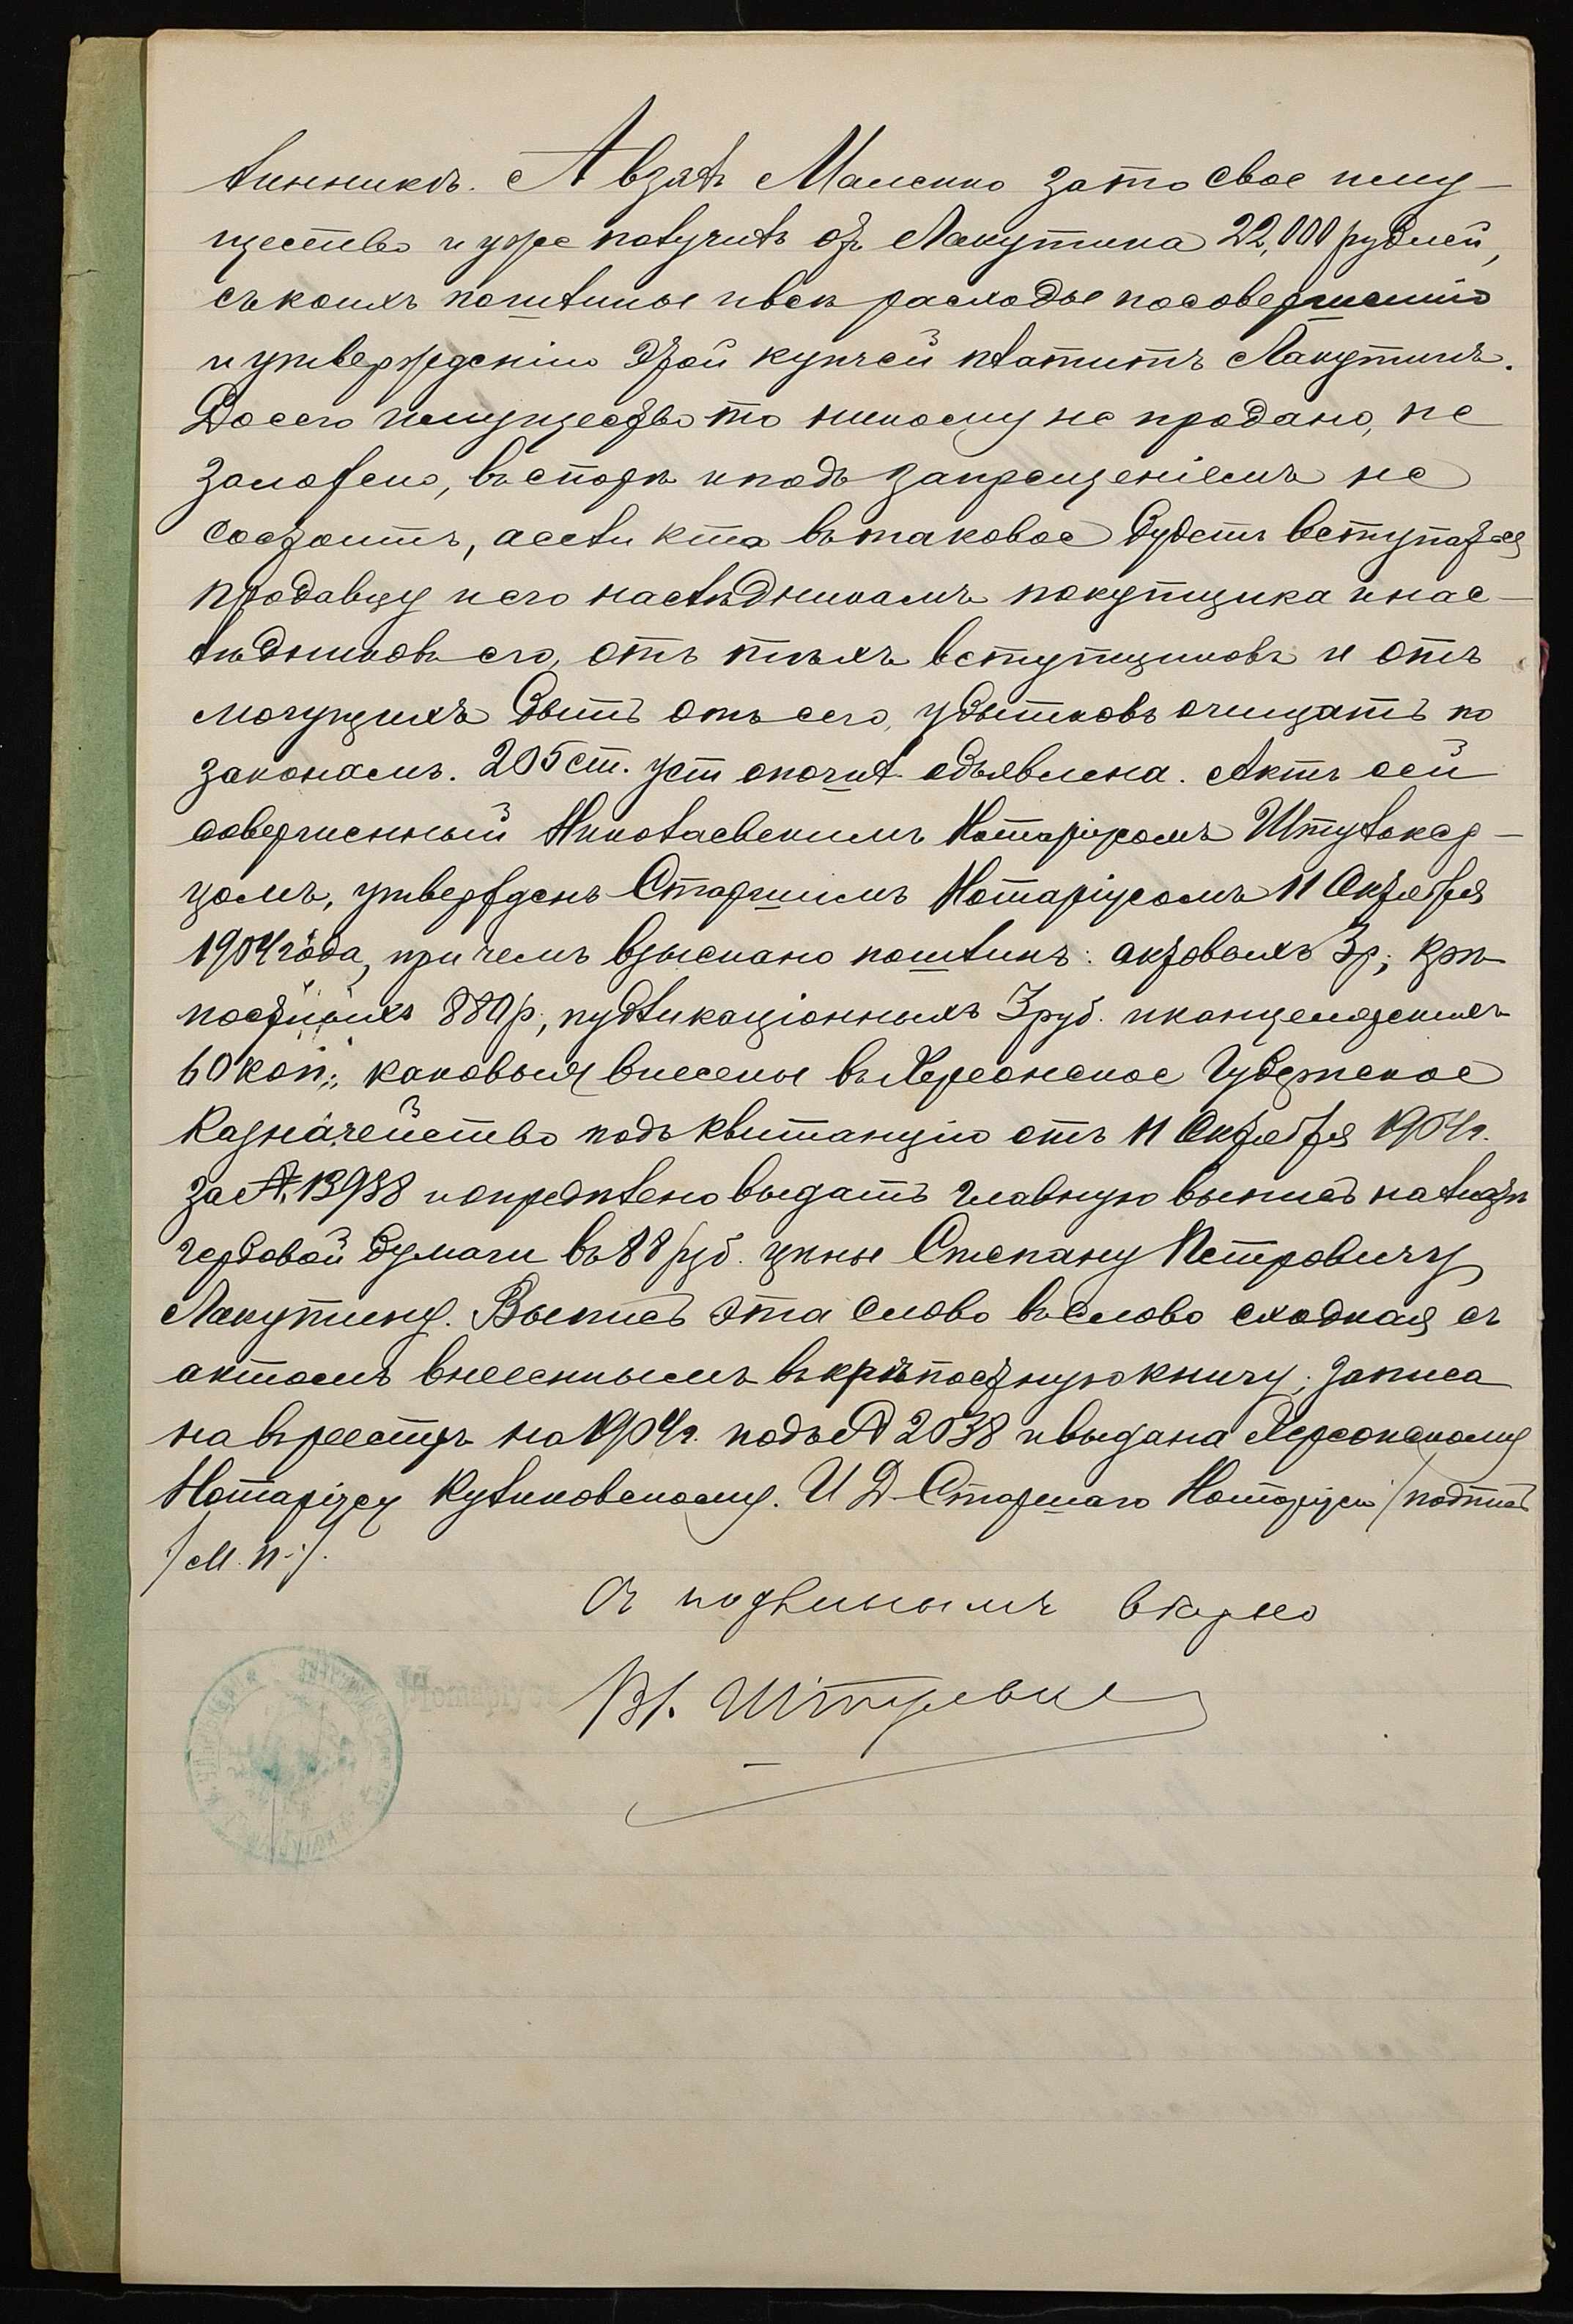 линникъ. А взялъ Маленко за то свое иму-
щество и уже получилъ отъ Лакутина 22,000 рублей,
съ коихъ пошлины и всѣ расходы по совершенію
и утвержденію этой купчей платитъ Лакутинъ.
До сего имущество то никому не продано, не
заложено, въ спорѣ и подъ запрещеніемъ не
состоитъ, а если кто въ таковое будетъ вступаться
продавцу и его наслѣдникамъ покупщика и нас-
лѣдниковъ его, отъ тѣхъ вступщиковъ и отъ
могущихъ быть отъ сего, убытковъ очищать по
законамъ. 205 ст. уст о пошл объявлена. Актъ сей
совершенный Николаевскимъ Нотаріусомъ
цомъ, утвержденъ Старшимъ Нотаріусомъ 11 Октября
1904 года, при чемъ взыскано пошлинъ: актовыхъ 3 р; крѣ-
постныхъ 880 р; публикаціонныхъ 3 руб. и канцелярскихъ
60 коп; каковыя внесены въ Херсонское Губернское
Казначейство подъ квитанцію отъ 11 Октября 1904 г.
за № 13938 и опредѣлено выдать главную выпись на листѣ
гербовой бумаги въ 88 руб. цѣны Степану Петровичу
Лакутину. Выпись эта слово въ слово сходная съ
актомъ внесеннымъ въ крѣпостную книгу; записа
на въ реестръ на 1904 г. подъ № 2038 и выдана Херсонскому
Нотаріусу Куликовскому. И Д. Старшаго Нотаріуса /подпись
/М. П./.
Съ подлиннымъ вѣрно
Нотаріусъ